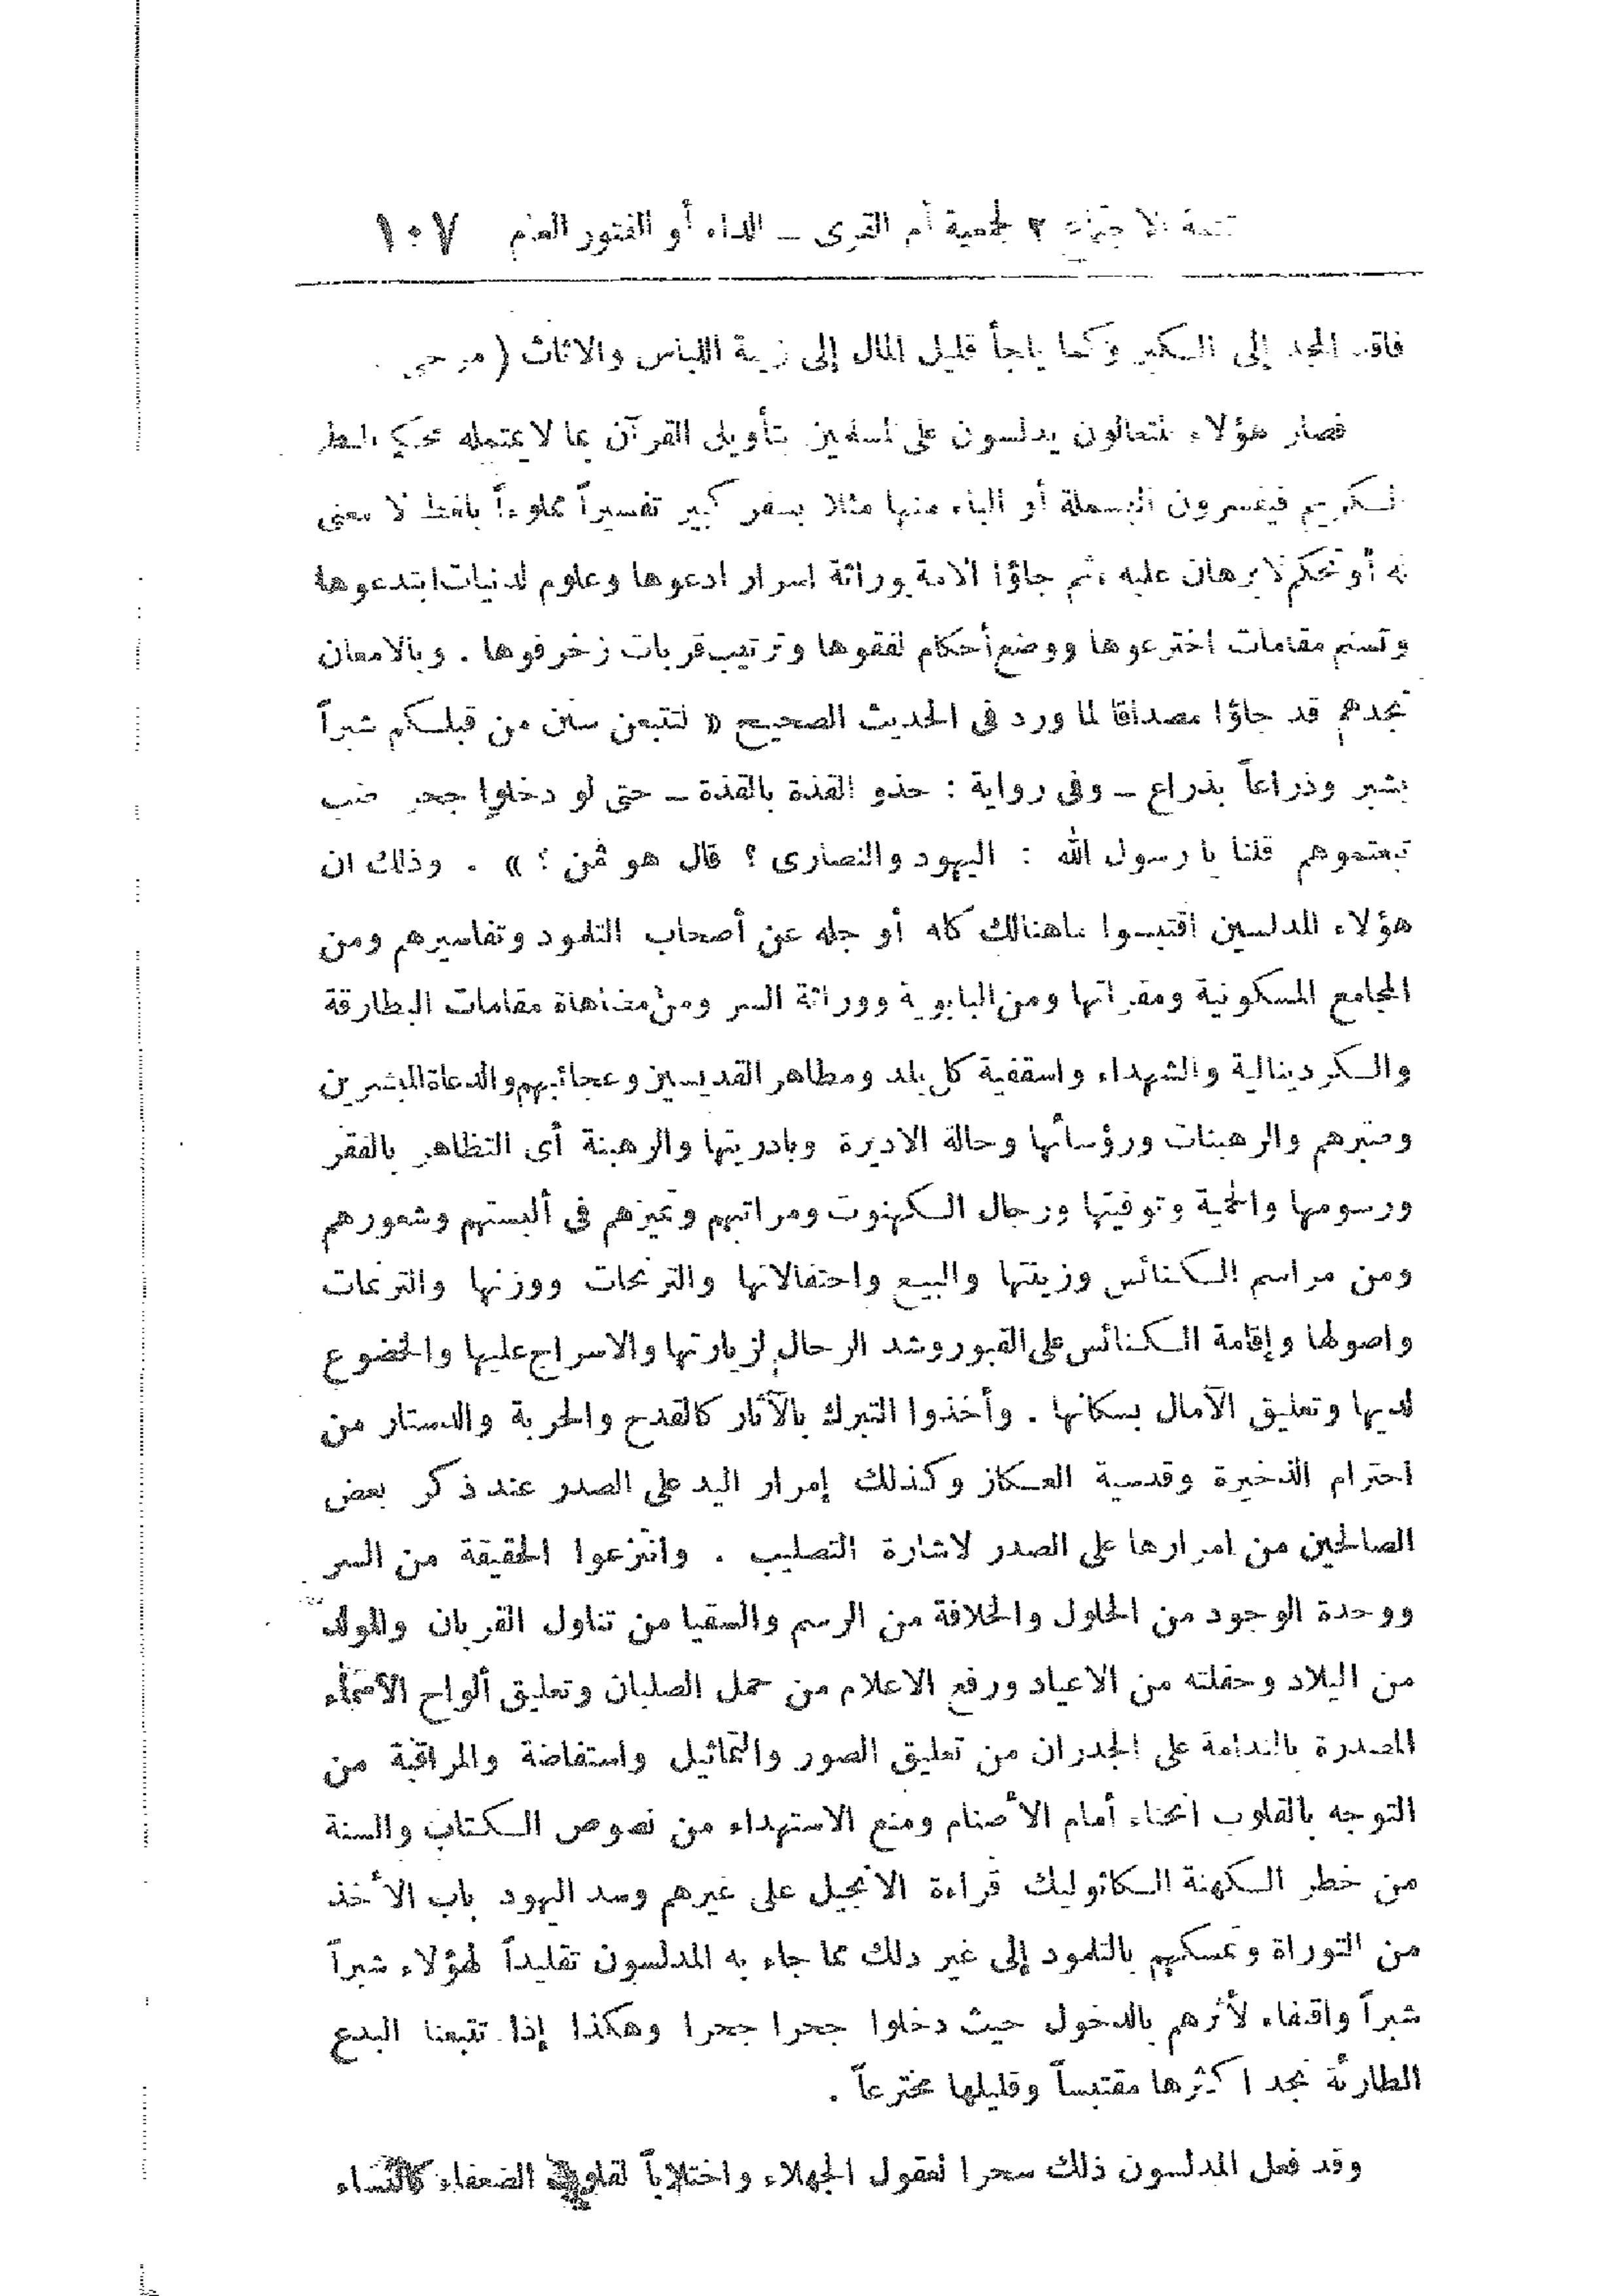 تتمة الاجتماع ٢ لجمعية أم القرى ــ الداء أو الفتور العام ١٠٧
فاقد المجد إلى الكبر وكما يلجأ قليل المال إلى زينة اللباس والاثاث (مرحى
فصار هؤلاء المتعالون يدلسون على المسلمين بتأويل القرآن بما لا يحتمله محكم النظم
الكريم فيفسرون البسملة أو الباء منها مثلا بسفر كبير تفسيراً مملوءاً بلغط لا معنى
له أو تحكم لا برهان عليه ، ثم جاؤا الامة بوراثة اسرار ادعوها وعلوم لدنيات ابتدعوها
وتسنم مقامات اخترعوها ووضع أحكام لفقوها وترتيب قربات زخرفوها . وبالامعان
نجدهم قد جاؤا مصداقا لما ورد فى الحديث الصحيح « لتتبعن سنن من قبلكم شبراً
بشبر وذراعاً بذراع ــ وفى رواية : حذو القذة بالقذة ــ حتى لو دخلوا جحر ضب
تبعتموهم قلنا يا رسول الله : اليهود والنصارى ؟ قال هو فمن ؟ » . وذلك ان
هؤلاء المدلسين اقتبسوا ماهنالك كله أو جله عن أصحاب التلمود وتفاسيرهم ومن
المجامع المسكونية ومقرراتها ومن البابوية ووراثة السر ومن مضاهاة مقامات البطارقة
والكردينالية والشهداء واسقفية كل بلد ومظاهر القديسين وعجائبهم والدعاة المبشرين
وصبرهم والرهبنات ورؤسائها وحالة الاديرة وبادريتها والرهبنة أى التظاهر بالفقر
ورسومها والحمية وتوقيتها ورجال الكهنوت ومراتبهم وتميزهم فى ألبستهم وشعورهم
ومن مراسم الكنائس وزينتها والبيع واحتفالاتها والترنحات ووزنها والترنمات
واصولها وإقامة الكنائس على القبور وشد الرحال لزيارتها والاسراج عليها والخضوع
لديها وتعليق الآمال بسكانها . وأخذوا التبرك بالآثار كالقدح والحربة والدستار من
احترام الذخيرة وقدسية العكاز وكذلك إمرار اليد على الصدر عند ذكر بعض
الصالحين من امرارها على الصدر لاشارة التصليب . وانتزعوا الحقيقة من السر
ووحدة الوجود من الحلول والخلافة من الرسم والسقيا من تناول القربان والمولد
من الميلاد وحفلته من الاعياد ورفع الاعلام من حمل الصلبان وتعليق ألواح الأسماء
المصدرة بالندامة على الجدران من تعليق الصور والتماثيل واستفاضة والمراقبة من
التوجه بالقلوب انحناء أمام الأصنام ومنع الاستهداء من نصوص الكتاب والسنة
من خطر الكهنة الكاثوليك قراءة الانجيل على غيرهم وسد اليهود باب الأخذ
من التوراة وتمسكهم بالتلمود إلى غير دلك مما جاء به المدلسون تقليداً لهؤلاء شبراً
شبراً واقتفاء لأثرهم بالدخول حيث دخلوا جحرا جحرا وهكذا إذا تتبعنا البدع
الطارئة نجد اكثرها مقتبساً وقليلها مخترعاً .
وقد فعل المدلسون ذلك سحرا لعقول الجهلاء واختلاباً لقلوب الضعفاء كالنساء